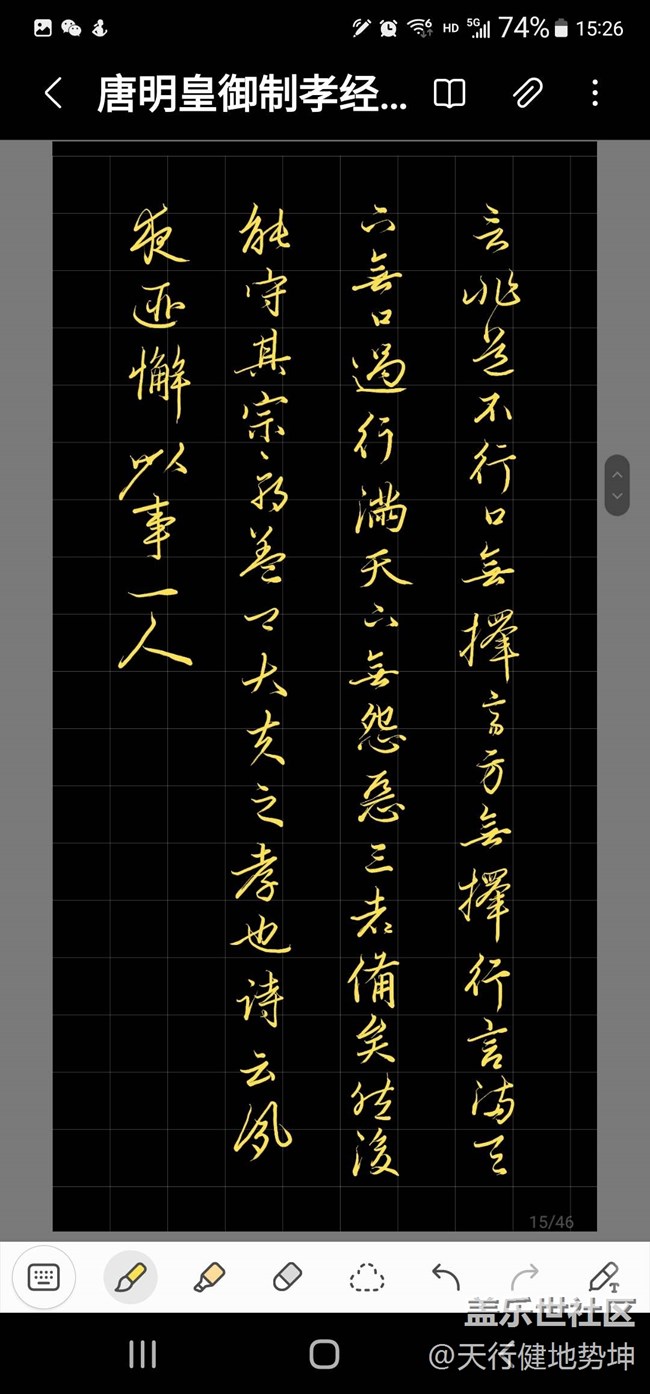 HD 5G 74% 15:26
唐明皇御制孝经...
言非道不行口無擇言身無擇行言满天
下無口過行滿天下無怨惡三者備矣然後
能守其宗廟蓋卿大夫之孝也诗云夙
夜匪懈以事一人
15/46
盖乐世社区
@天行健地势坤